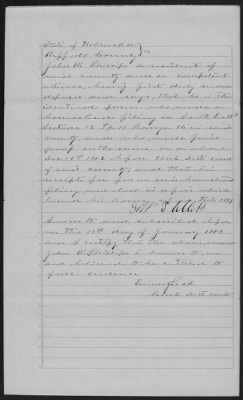 State of Nebraska
Buffalo County
John W. Phillips a resident of
said county and a competent
witness, being first duly sworn
deposes and says, that he is the
identical person who made a
homestead filing on South East
Section 12 Tp 11 Range 18 in said
county and who made final
proof on the same on or about
Dec 11th 1882 before Clerk Dist Court
of said county and that his
receipts for fees on said
filing and that is a fair which
hand his
Sworn to and subscribed before
me this 11th day of January 1883
and I certify that the above named
John W Phillips is known to me
and believed to be entitled to
full credence
Clerk Dist Court